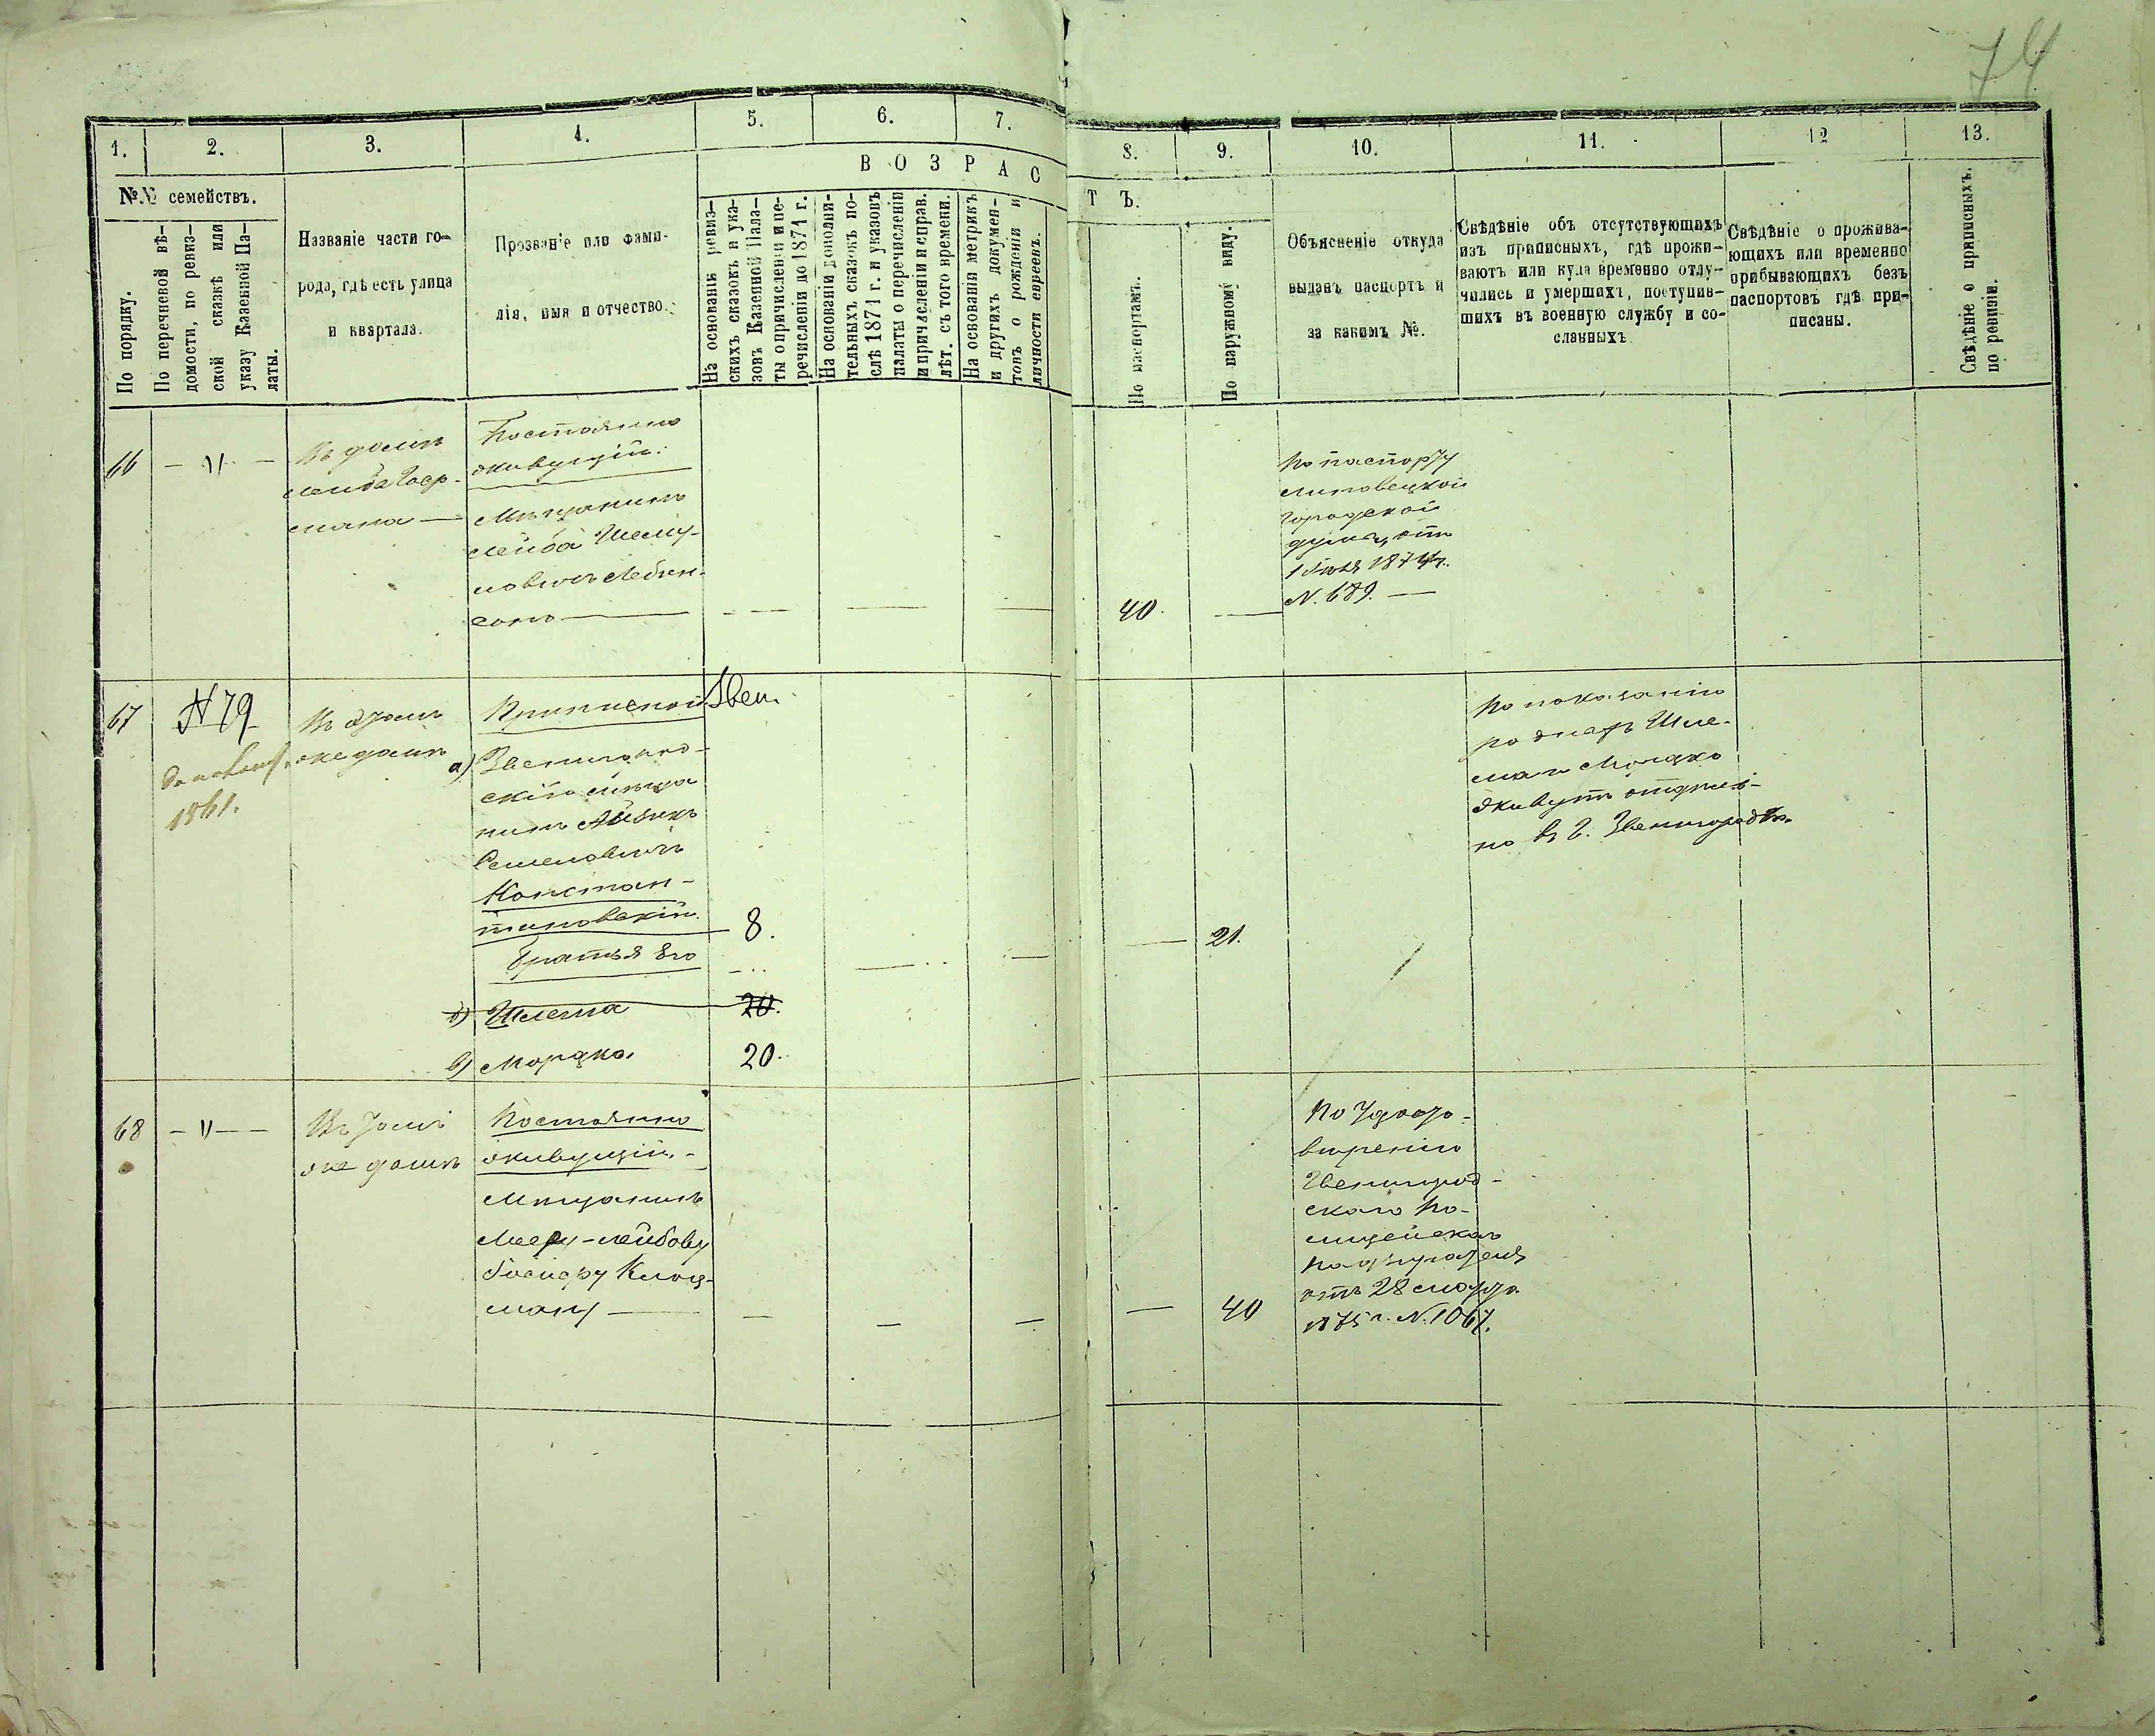 74
1.
2.
3.
4.
5.
6.
7.
8.
9.
10.
11.
12
13.
№№ семействъ.
По порядку.
По перечневой вѣ-
домости, по ревиз-
ской сказкѣ или
указу Казенной Па-
латы.
Названіе части го-
рода, гдѣ есть улица
и квартала.
Прозваніе или фами-
лія, имя и отчество.
ВОЗРАС
ТЪ.
На основаніи ревиз-
скихъ сказокъ и ука-
зовъ Казенной Пала-
ты о причисленіи и пе-
речисленіи до 1871 г.
На основаніи дополни-
тельныхъ сказокъ по-
слѣ 1871 г. и указовъ
палаты о перечисленіи
и причисленіи и справ.
лѣт. съ того времени.
На основаніи метрикъ
и другихъ докумен-
товъ о рожденіи и
личности евреевъ.
По паспортамъ.
По наружному виду.
Объясненіе откуда
выданъ паспортъ и
за какимъ №.
Свѣдѣніе объ отсутствующихъ
изъ приписныхъ, гдѣ прожи-
ваютъ или куда временно отлу-
чились и умершихъ, поступив-
шихъ въ военную службу и со-
сланныхъ
Свѣдѣніе о прожива-
ющихъ или временно
прибывающихъ безъ
паспортовъ гдѣ при-
писаны.
Свѣдѣніе о приписныхъ.
по ревизіи.
66
— „ —
Въ домѣ
Лейба
мана —
Постоянно
живущій:
Мѣщанинъ
Лейба Шму-
ловичъ
сонъ —
40.
По паспорту
Липовецкой
Городской
думы, отъ
1 1874 г.
N. 689. —
67
N 79
1861.
Въ томъ
же домѣ
Приписной
а) Звенигород-
скій мѣща
нинъ Айзикъ
Семеновичъ
Констан-
тиновскій.
8.
21.
Братья его
б) Шлема
20.
в) Мордко.
20.
По показанію
роднаго Шле-
ма и Мордко
живутъ отдѣль-
но въ г. Звенигородкѣ.
68
— „ —
Въ томъ
же домѣ
Постоянно
живущій. -
Мѣщанинъ
ману —
40
По удосто-
вѣренію
Звенигород-
скаго По-
лицейскаго
Надзирателя
отъ 28 марта
1875 г. N. 1067.